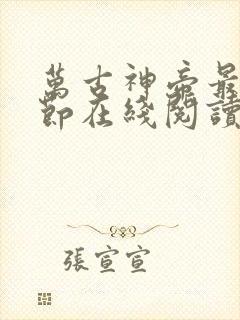 萬古神帝最
節在綫閱讀
張宣宣